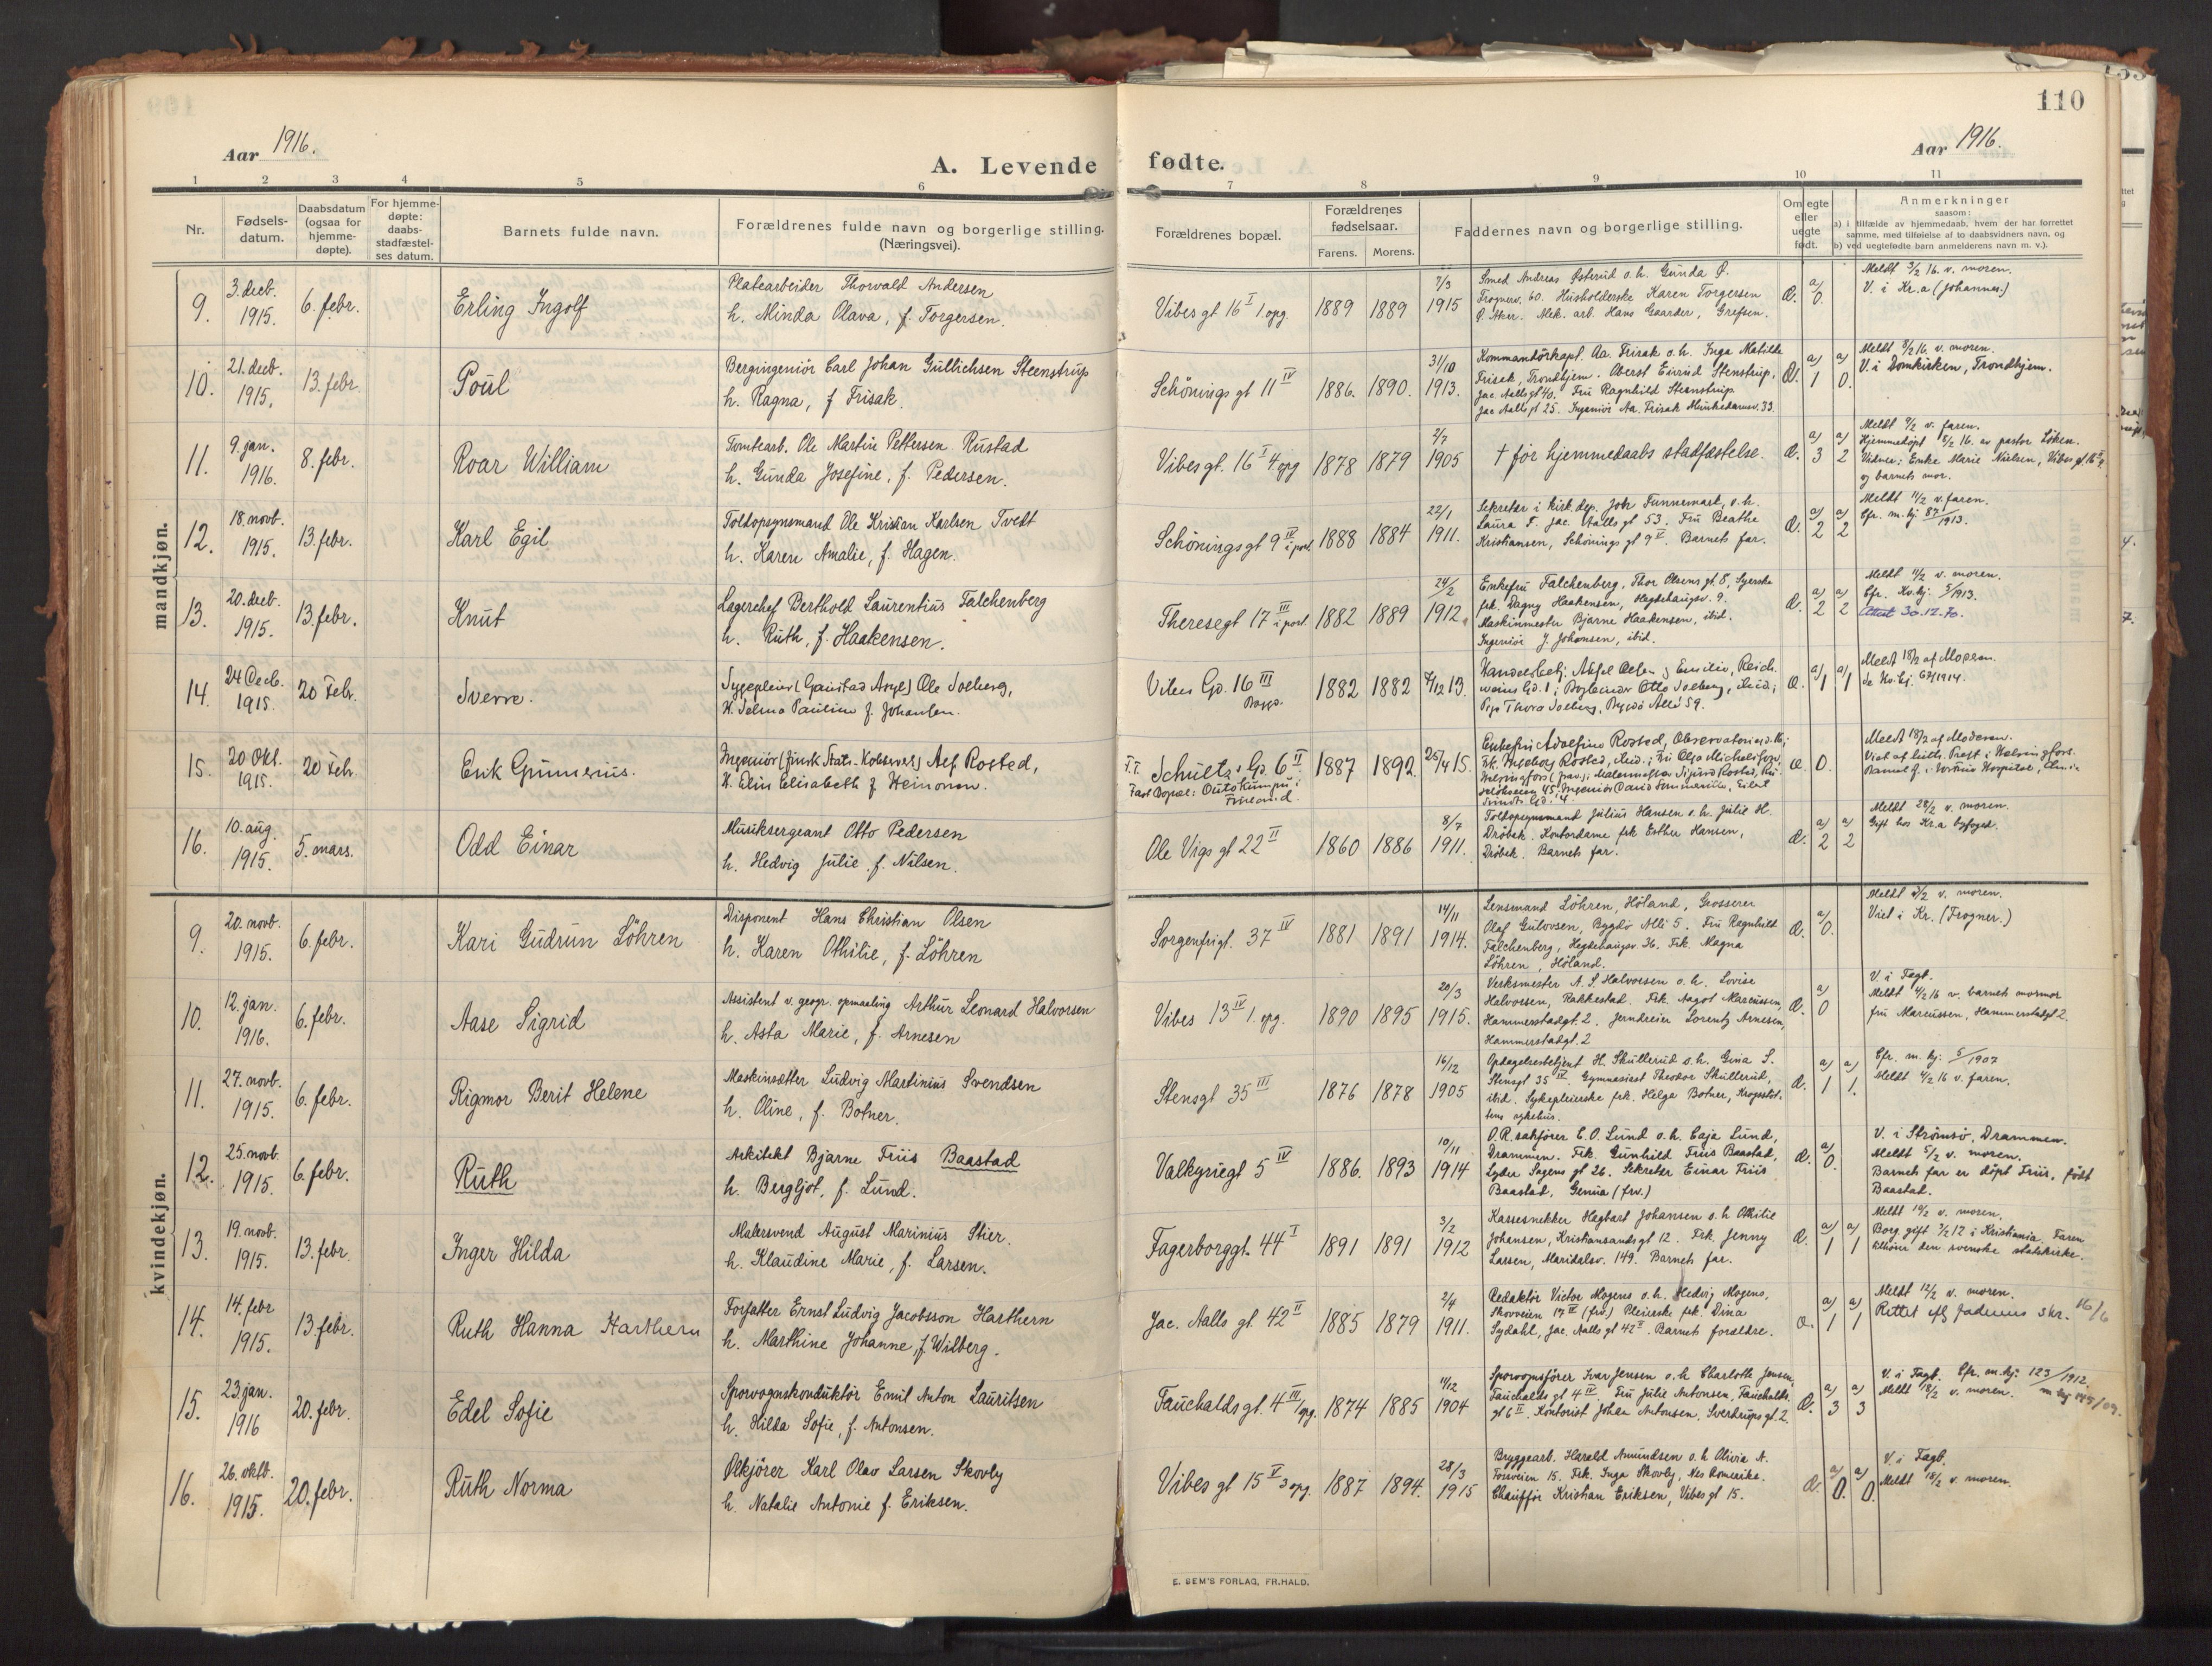 110
Aar 1916.
A. Levende fødte.
Aar 1916.
1 2 3 4 5 6 7 8 9 10 11
Nr.
Fødsels-
datum.
Daabsdatum
(ogsaa for
hjemme-
døpte).
For hjemme-
døpte:
daabs-
stadfæstel-
ses datum.
Barnets fulde navn.
Forældrenes fulde navn og borgerlige stilling.
(Næringsvei).
Forældrenes bopæl.
Forældrenes
fødselsaar.
Farens. Morens.
Faddernes navn og borgerlige stilling.
Om egte
eller
uegte
født.
Anmerkninger
saasom:
a) i tilfælde av hjemmedaab, hvem der har forrettet
samme, med tilføielse af to daabsvidners navn, og
b) ved uegtefødte barn anmelderens navn m. v.).
mandkjøn.
9.
3. decb.
1915.
6. febr.
Erling Ingolf
Platearbeider Thorvald Andersen
h. Minda Olava, f. Torgersen.
Vibes gt 16 I 1. opg.
1889 1889
7/3
1915
Smed Andreas Østerud o. h. Gunda Ø.
Frognerv. 60. Husholderske Karen Torgersen
Ø. Aker. Mek. arb. Hans Gaarder, Grefsen.
Æ.
a/
0.
Meldt 3/2 16. v. moren.
V. i Kr.a (Johannes.)
10.
21. decb.
1915.
13. febr.
Poul
Bergingeniør Carl Johan Gullichsen Steenstrup
h. Ragna, f Frisak.
Schönings gt 11 IV
1886. 1890.
31/10
1913.
Kommandörkapt. Aa. Frisak o. h. Inga Matilde
Frisak, Trondhjem. Oberst Eivind Stenstrup,
Jac. Aalls gt 40. Fru Ragnhild Steenstrup
Jac Aalls gt 25. Ingeniør Aa. Frisak Munkedamsv. 33.
Æ.
a/ a/
1 0.
Meldt 3/2 16. v. moren.
V. i Domkirken, Trondhjem.
11.
9. jan.
1916.
8. febr.
Roar William
Tomtearb. Ole Martin Pettersen Rustad
h. Gunda Josefine, f. Pedersen.
Vibes gt. 16 I 4 opg
1878 1879
2/7
1905
† før hjemmedaabs stadfæstelse.
Æ.
a/ a/
3 2
Meldt 9/2 v. faren.
Hjemmedøpt 8/2 16. av pastor Löken.
Vidner: Enke Marie Nielsen, Vibes gt. 16
og barnets mor.
12.
18. novb.
1915.
13. febr.
Karl Egil
Toldopsynsmand Ole Kristian Karlsen Tvedt
h. Karen Amalie, f. Hagen.
Schönings gt 9 IV i port
1888 1884
22/1
1911.
Sekretær i kirk. dep. Johs Funnemark, o. h.
Laura F. Jac. Aalls gt 53. Fru Beathe
Kristiansen, Schönings gt 9 II. Barnets far.
Æ.
a/ a/
2 2
Meldt 11/2 v. faren.
Cfr. m. kj 87/1913.
13.
20. decb.
1915.
13. febr.
Knut
Lagerchef Berthold Laurentius Falchenberg
h. Ruth, f. Haakensen.
Theresegt 17 III i port
1882 1889
24/2
1912.
Enkefru Falchenberg, Thor Olsens gt. 8, Syerske
frk. Dagny Haakensen, Hegdehaugsv. 9.
Maskinmester Bjarne Haakensen, ibid.
Ingeniør J. Johansen, ibid.
Æ.
a/ a/
2 2
Meldt 11/2 v. moren.
Cfr. Kv. kj. 5/1913.
Attest 30.12.70.
14.
24 Decb.
1915.
20 Febr.
Sverre.
Sygepleier (Gaustad Asyl) Ole Solberg,
H. Selma Pauline f. Johansen.
Vibes Gd. 16 III
1882 1882
7/12 13.
Æ.
a/ a/
1 1
Meldt 18/2 af Moderen.
15.
20 Okt.
1915.
20 Febr.
Erik Gunnerius.
Ingeniør (finsk Stats-Kobberverk) Alf Rosted,
H. Elin Elisabeth f. Heinonen.
Schultz' Gd. 6 II
Fast Bopæl: Outokumpu i
Finland.
1887 1892
25/4 15.
Enkefru Adolfine Rosted, Observatoriegt.
Frk. Ingeborg Rosted, ibid.; Fru Olga Michelsson,
Æ. 0.
Meldt 18/2 af Moderen.
Viet af luth. Prest i Helsingfors.
16.
10. aug.
1915.
5. mars.
Odd Einar
Musiksergeant Otto Pedersen
h. Hedvig Julie f. Nilsen.
Ole Vigs gt 22 II
1860 1886
8/7
1911.
Toldopsynsmand Julius Hansen o. h. Julie H.
Drøbak. Kontordame frk Esther Hansen,
Drøbak. Barnets far.
Æ.
a/ a/
2 2
Meldt 28/2 v. moren.
Gift hos Kr.a byfoged.
kvindekjøn.
9.
20. novb.
1915.
6. febr.
Kari Gudrun Löhren
Disponent Hans Christian Olsen
h. Karen Othilie, f. Löhren
Sorgenfrigt. 37 IV
1881 1891
14/11
1914.
Lensmand Löhren, Höland, Grosserer
Olaf Gulovsen, Bygdö Allé 5. Fru Ragnhild
Falchenberg, Hegdehaugsv 36. Frk. Magna
Löhren, Höland.
Æ.
a/
0.
Meldt 2/2 v. moren.
Viet i Kr. (Frogner.)
10.
12. jan.
1916.
6. febr.
Aase Sigrid
Assistent v. geogr. opmaaling Arthur Leonard Halvorsen
h. Asta Marie, f. Arnesen
Vibes 13 IV 1. opg.
1890 1895
20/3
1915.
Verksmester A. S. Halvorsen o. h. Lovise
Halvorsen, Rakkestad. Frk. Aagot Marcussen,
Hammerstadgt. 2. Jerndreier Lorentz Arnesen,
Hammerstadgt. 2
Æ.
a/
0
V. i Fagb.
Meldt 4/2 16 v. barnets mormor
fru Marcussen, Hammerstadgt 2.
11.
27. novb.
1915.
6. febr.
Rigmor Berit Helene
Maskinsætter Ludvig Martinius Svendsen
h. Oline, f. Botner.
Stensgt 35 III
1876 1878
16/12
1905
Opdagelsesbetjent H. Skullerud o. h. Gina S.
Stensgt 35 IV. Gymnasiast Theodor Skullerud,
ibid. Sykepleierske frk. Helga Botner, Krogsstöt-
tens sykehus.
Æ.
a/ a/
1 1.
Cfr. m. kj. 5/1907
Meldt 4/2 16 v. faren.
12.
25. novb.
1915.
6. febr.
Ruth
Arkitekt Bjarne Friis Baastad
h. Bergljot, f. Lund.
Valkyriegt 5 IV
1886. 1893
10/11
1914
O. R. sakfører C. O. Lund o. h. Caja Lund,
Drammen. Frk. Gunhild Friis Baastad,
Lyder Sagens gt 26. Sekretær Einar Friis
Baastad, Genua (frv.)
Æ.
a/
0.
V. i Strömsö, Drammen.
Meldt 5/2 v. moren.
Barnets far er døpt Friis, født
Baastad.
13.
19. novb.
1915.
13. febr.
Inger Hilda
Malersvend August Marinius Stier.
h. Klaudine Marie, f. Larsen.
Fagerborggt. 44 I
1891 1891
3/2
1912
Kassesnekker Hagbart Johansen o. h Othilie
Johansen, Kristiansands gt 12. Frk. Jenny
Larsen, Maridalsv. 149. Barnets far.
Æ.
a/ a/
1 1
Meldt 10/2 v. moren.
Borg. gift 3/2 12 i Kristiania. Faren
tilhører den svenske statskirke.
14.
14. febr
1915.
13. febr.
Ruth Hanna Harthern
Forfatter Ernst Ludvig Jacobsson Harthern
h. Marthine Johanne, f. Wilberg.
Jac. Aalls gt. 42 II
1885 1879
2/4
1911.
Redaktør Victor Mogens o. h. Hedvig Mogens,
Skovveien 17 IV (frv.) Pleierske frk. Dina
Sydahl, Jac. Aalls gt 42 II. Barnets forældre.
Æ.
a/ a/
1 1
Meldt 12/2 v. moren.
Rettet efter Jadens skr. 16/6
15.
23 jan.
1916
20. febr.
Edel Sofie
Sporvognskonduktør Emil Anton Lauritsen
h. Hilda Sofie, f. Antonsen.
Fauchalds gt. 4 III 1 opg.
1874 1885
11/12
1904
Sporvognsfører Ivar Jensen o. h Charlotte Jensen,
Fauchalds gt 4 IV. Fru Julie Antonsen, Fauchalds
gt 6 II. Kontorist Johan Antonsen, Sverdrups gt. 2.
Æ.
a/ a/
3 3
V. i Fagb. Cfr. m. kj. 123/1912.
Meldt 18/2 v. moren.
16.
26. oktb.
1915.
20. febr.
Ruth Norma
Ølkjører Karl Olav Larsen Skovby
h. Natalie Antonie f. Eriksen.
Vibes gt 15 V 3 opg.
1887 1894.
28/3
1915
Bryggearb. Harald Amundsen o. h Olivia A.
Fossveien 15. Frk. Inga Skovby, Nes Romerike.
Chauffør Kristian Eriksen, Vibes gt 15.
Æ.
a/ a/
0. 0.
V. i Fagb.
Meldt 18/2 v. moren.
E. SEM'S FORLAG, FR.HALD.